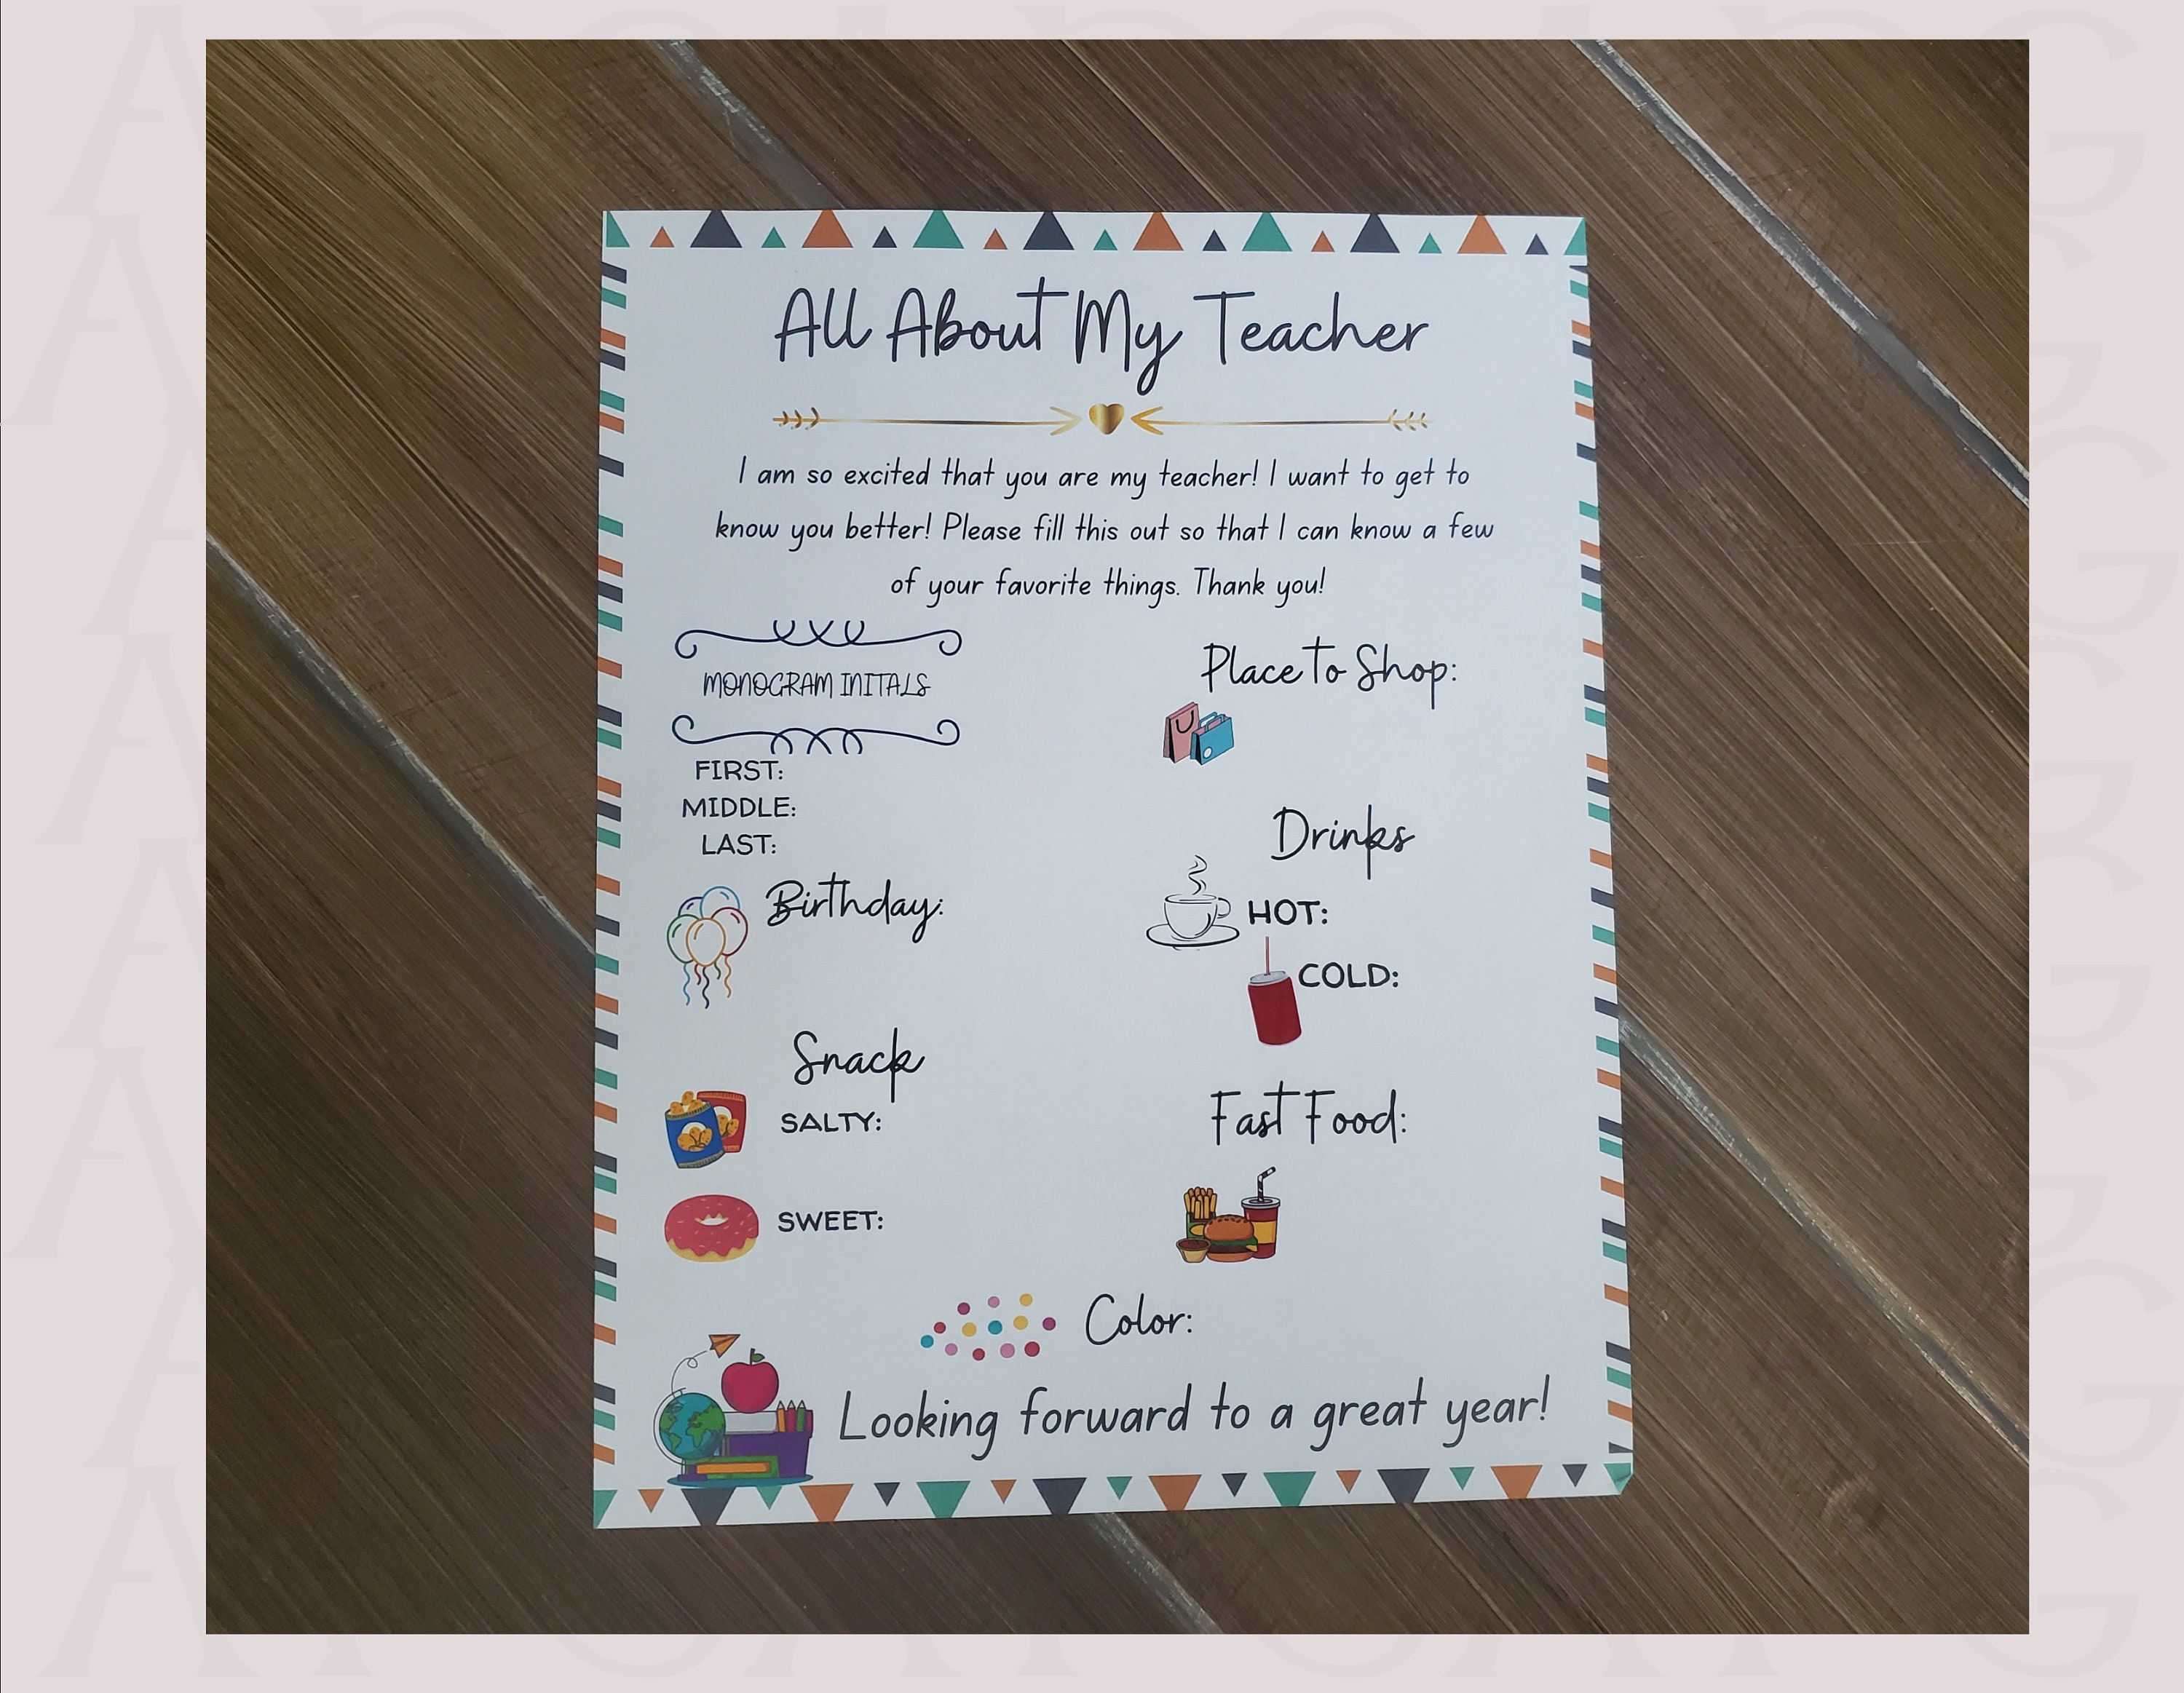 All About My Teacher
I am so excited that you are my teacher! I want to get to
know you better! Please fill this out so that I can know a few
of your favorite things. Thank you!
MONOGRAM INITALS
FIRST:
MIDDLE:
LAST:
Birthday:
Snack
SALTY:
SWEET:
Place to Shop:
Drinks
HOT:
COLD:
Fast Food:
Color:
Looking forward to a great year!